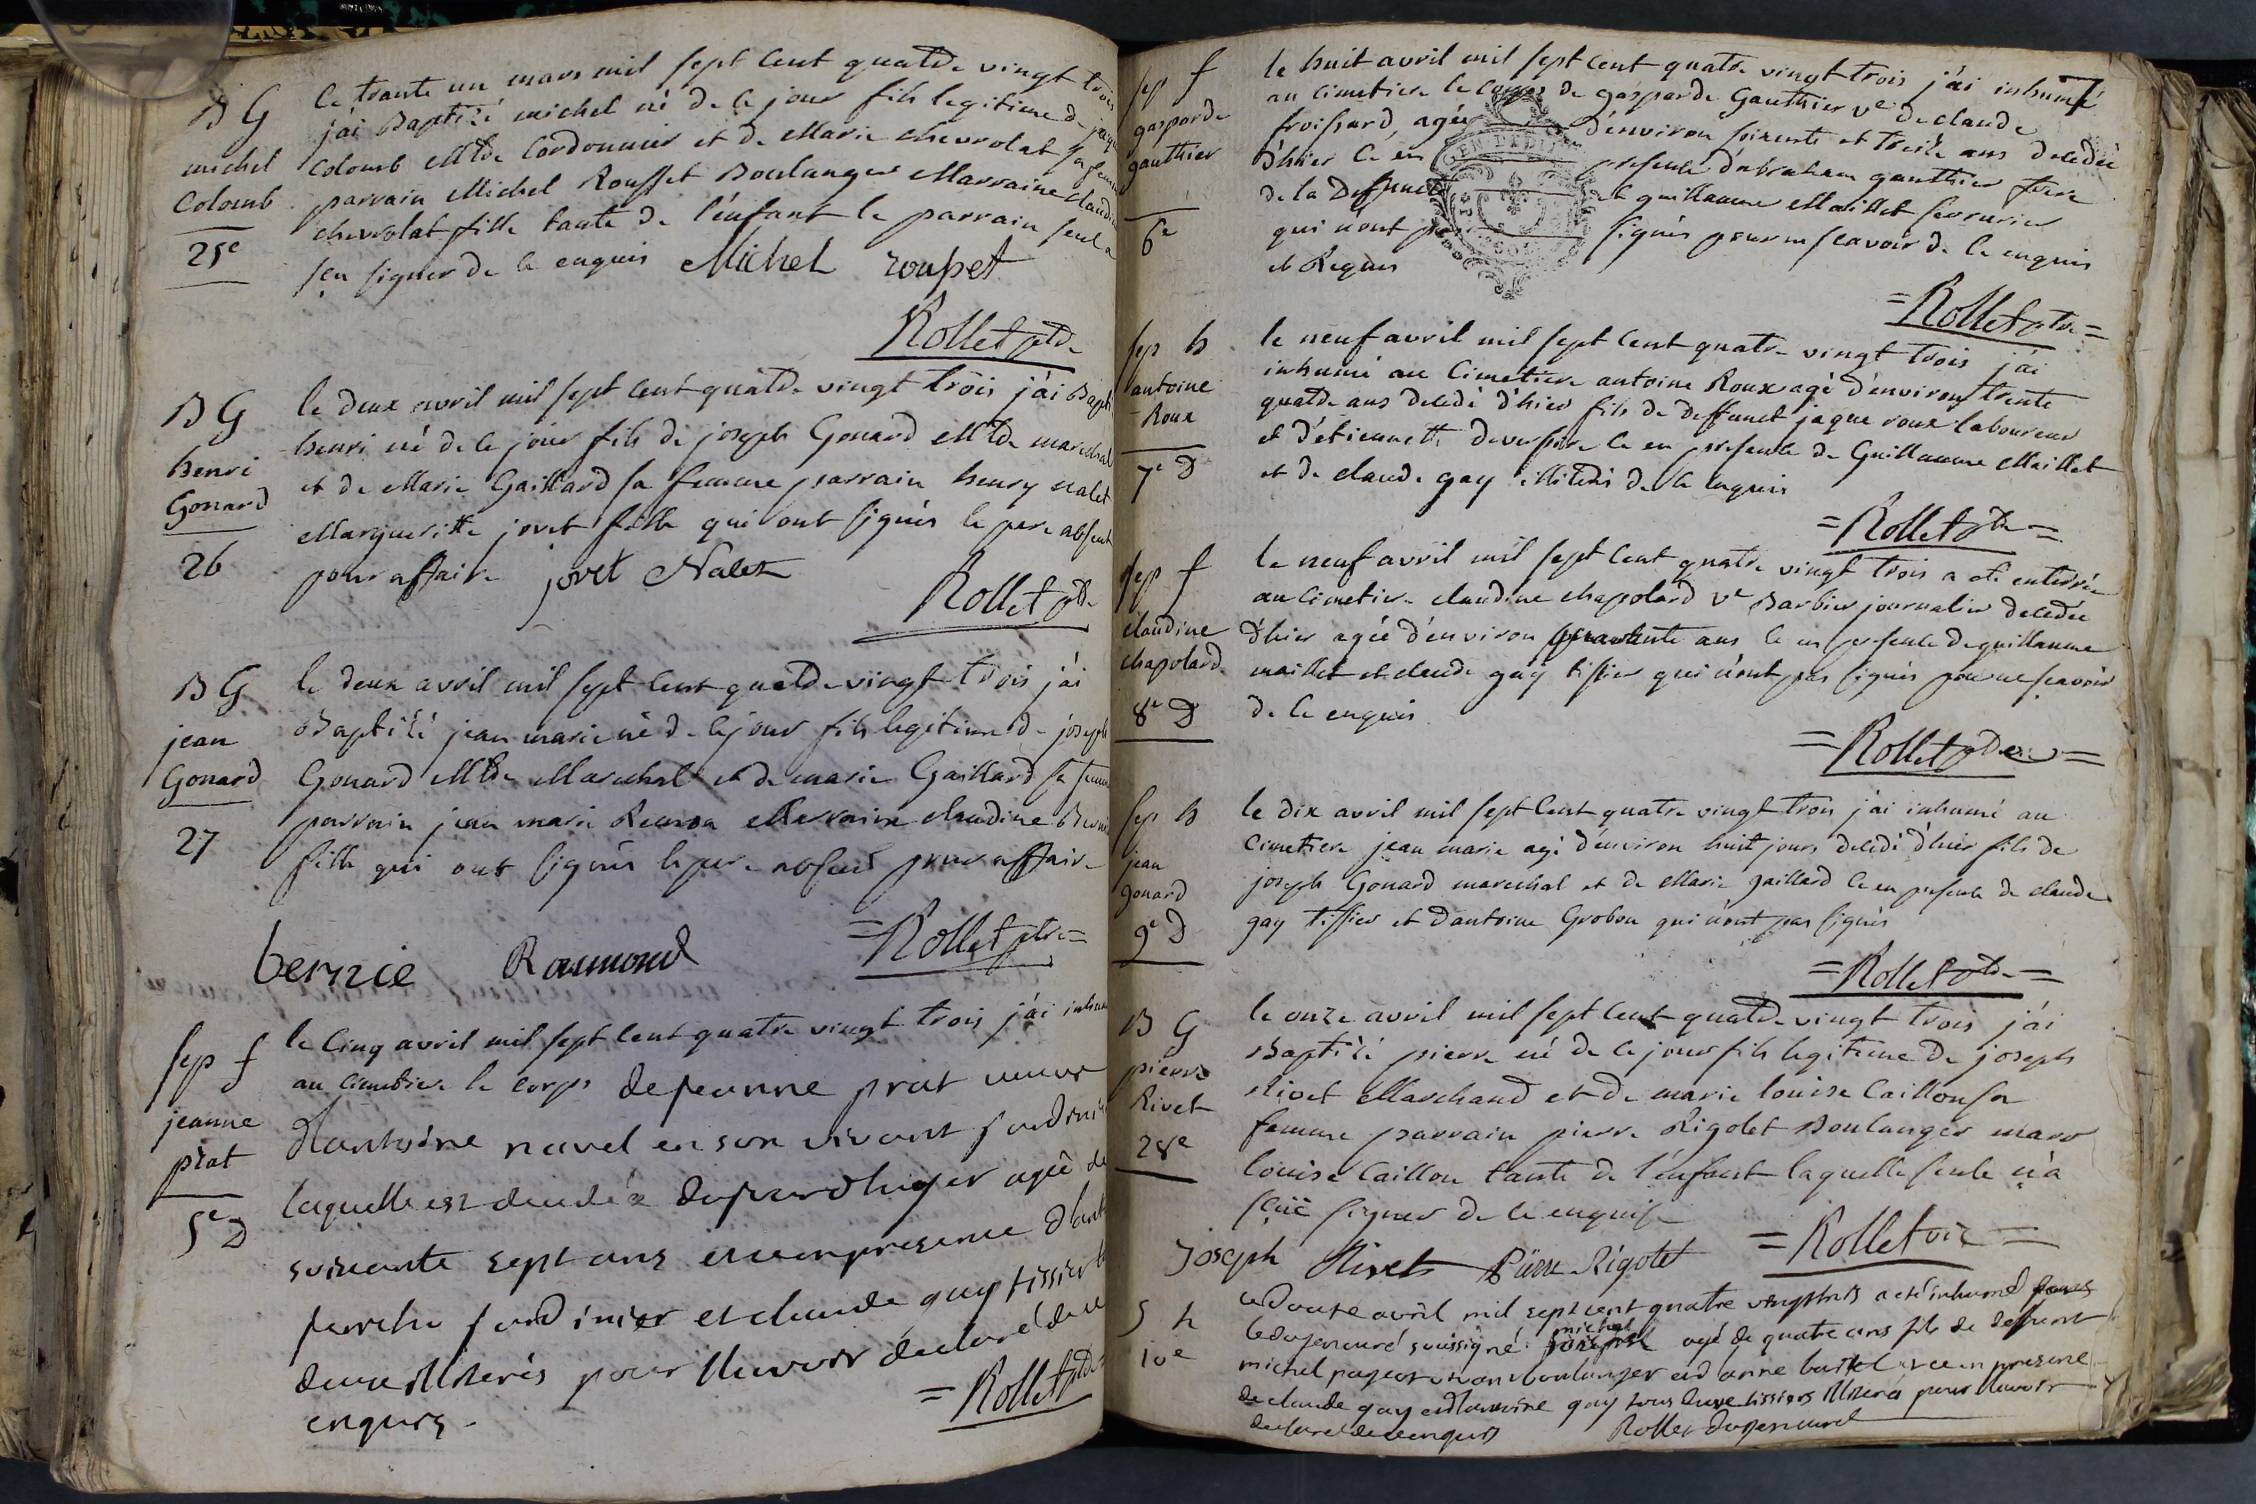 B G
michel
Colomb
25e
le trante un mars mil sept cent quatre vingt trois
j'ai Baptizé michel né de ce jour fils legitime de jaque
Colomb Mtre Cordonnier et de Marie chevrolat sa femme
parrain Michel Rousset Boulanger Marraine claudine
chevrolat fille tante de l'enfant le parrain seul a
sçu signer de ce enquis Michel roupset
Rollet ptre
B G
henri
Gonard
26
le deux avril mil sept cent quatre vingt trois j'ai Bapti
henri né de ce jour fils de joseph Gonard Mtre marechal
et de Marie Gaillard sa femme parrain henry nalet
Margueritte jovet fille qui ont signés le pere absent
pour affaire jovet Nalet
Rollet ptre
B G
jean
Gonard
27
le deux avril mil sept cent quatre vingt trois j'ai
Baptizé jean marie né de ce jour fils legitime de joseph
Gonard Mtre Marechal et de marie Gaillard sa femme
parrain jean marie Marraine claudine
fille qui ont signés le pere absent pour affaire
=Rollet ptre=
bernie Raumond
sep f
jeanne
prat
5e D
le cinq avril mil sept cent quatre vingt trois j'ai inhumé
au cimetiere le corps de jeanne prat veuve
d'antoine navel en son vivant jardinier
laquelle est decedée du jour d'hyer agée de
soixante sept ans et ce en presence d'ant
perrche jardinier et claude gay tissier t
deux illiterés pour l'avoir declaré de ce
enquis.
=Rollet ptre
7
sep f
gasparde
gauthier
6e
le huit avril mil sept cent quatre vingt trois j'ai inhumé
au cimetiere le corps de gasparde Gauthier ve de claude
froissard, agée d'environ soixente et treize ans decedée
d'hier ce en presence d'abraham gauthier frere
de la Deffuncte et guillaume Maillet serrurier
qui n'ont pas signés pour ne sçavoir de ce enquis
et Requis
=Rollet ptre=
sep h
antoine
Roux
7e D
le neuf avril mil sept cent quatre vingt trois j'ai
inhumé au cimetiere antoine Roux agé d'environ trente
quatre ans decedé d'hier fils de deffunct jaque roux laboureur
et d'etiennette ce en presence de Guillaume Maillet
et de claude gay illiterés de ce enquis
=Rollet ptre=
sep f
claudine
chapolard
8e D
le neuf avril mil sept cent quatre vingt trois a eté enterrée
au cimetiere claudine chapolard ve Barbier journalier decedée
d'hier agée d'environ quarante ans ce en presence de guillaume
maillet et claude gay tissier qui n'ont pas signés pour ne sçavoir
de ce enquis
=Rollet ptre=
sep h
jean
gonard
9e D
le dix avril mil sept cent quatre vingt trois j'ai inhumé au
cimetiere jean marie agé d'environ huit jours decedé d'hier fils de
joseph Gonard marechal et de Marie gaillard ce en presence de claude
gay tissier et d'antoine Grobon qui n'ont pas signés
=Rollet ptre=
B G
pierre
Rivet
28e
le onze avril mil sept cent quatre vingt trois j'ai
Baptizé pierre né de ce jour fils legitime de joseph
Rivet Marchand et de marie louise Caillon sa
femme parrain pierre Rigolet Boulanger marr
louise Caillon tante de l'enfant laquelle seule n'a
sçüe signer de ce enquise
Joseph Rivet Pierre Rigolet =Rollet vic=
S h
10e
le douze avril mil sept cent quatre vingt trois a eté inhumé
soussigné michel agé de quatre ans fils de deffunt
michel boulanger et d'anne et ce en presence
de claude gay et d'antoine gay tous deux tissiers illiterés pour l'avoir
declaré de ce enquis Rollet